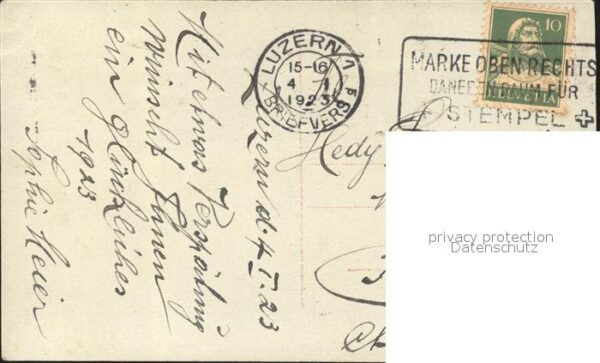 LUZERN 1
15-16
4 I
1923
BRIEFVERS
10
HELVETIA
MARKE OBEN RECHTS
DANEBEN RAUM FÜR
STEMPEL
Luzern d. 4. I. 23
Mit etwas Verspätung
wünscht Ihnen
ein glückliches
1923
Sophie Meier
Hedy
privacy protection
Datenschutz